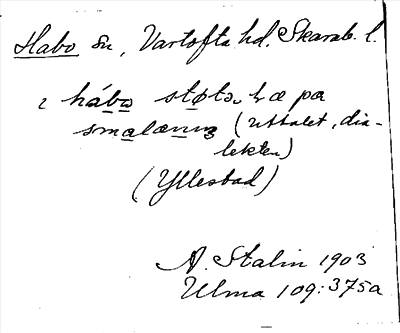 Habo sn, Vartofta hd. Skarab. l.
i hábo støtə, hæ pa
smalænnɩŋ (Uttalet, dia-
lekten)
(Yllestad)
A. Stalin 1903
Ulma 109:375a